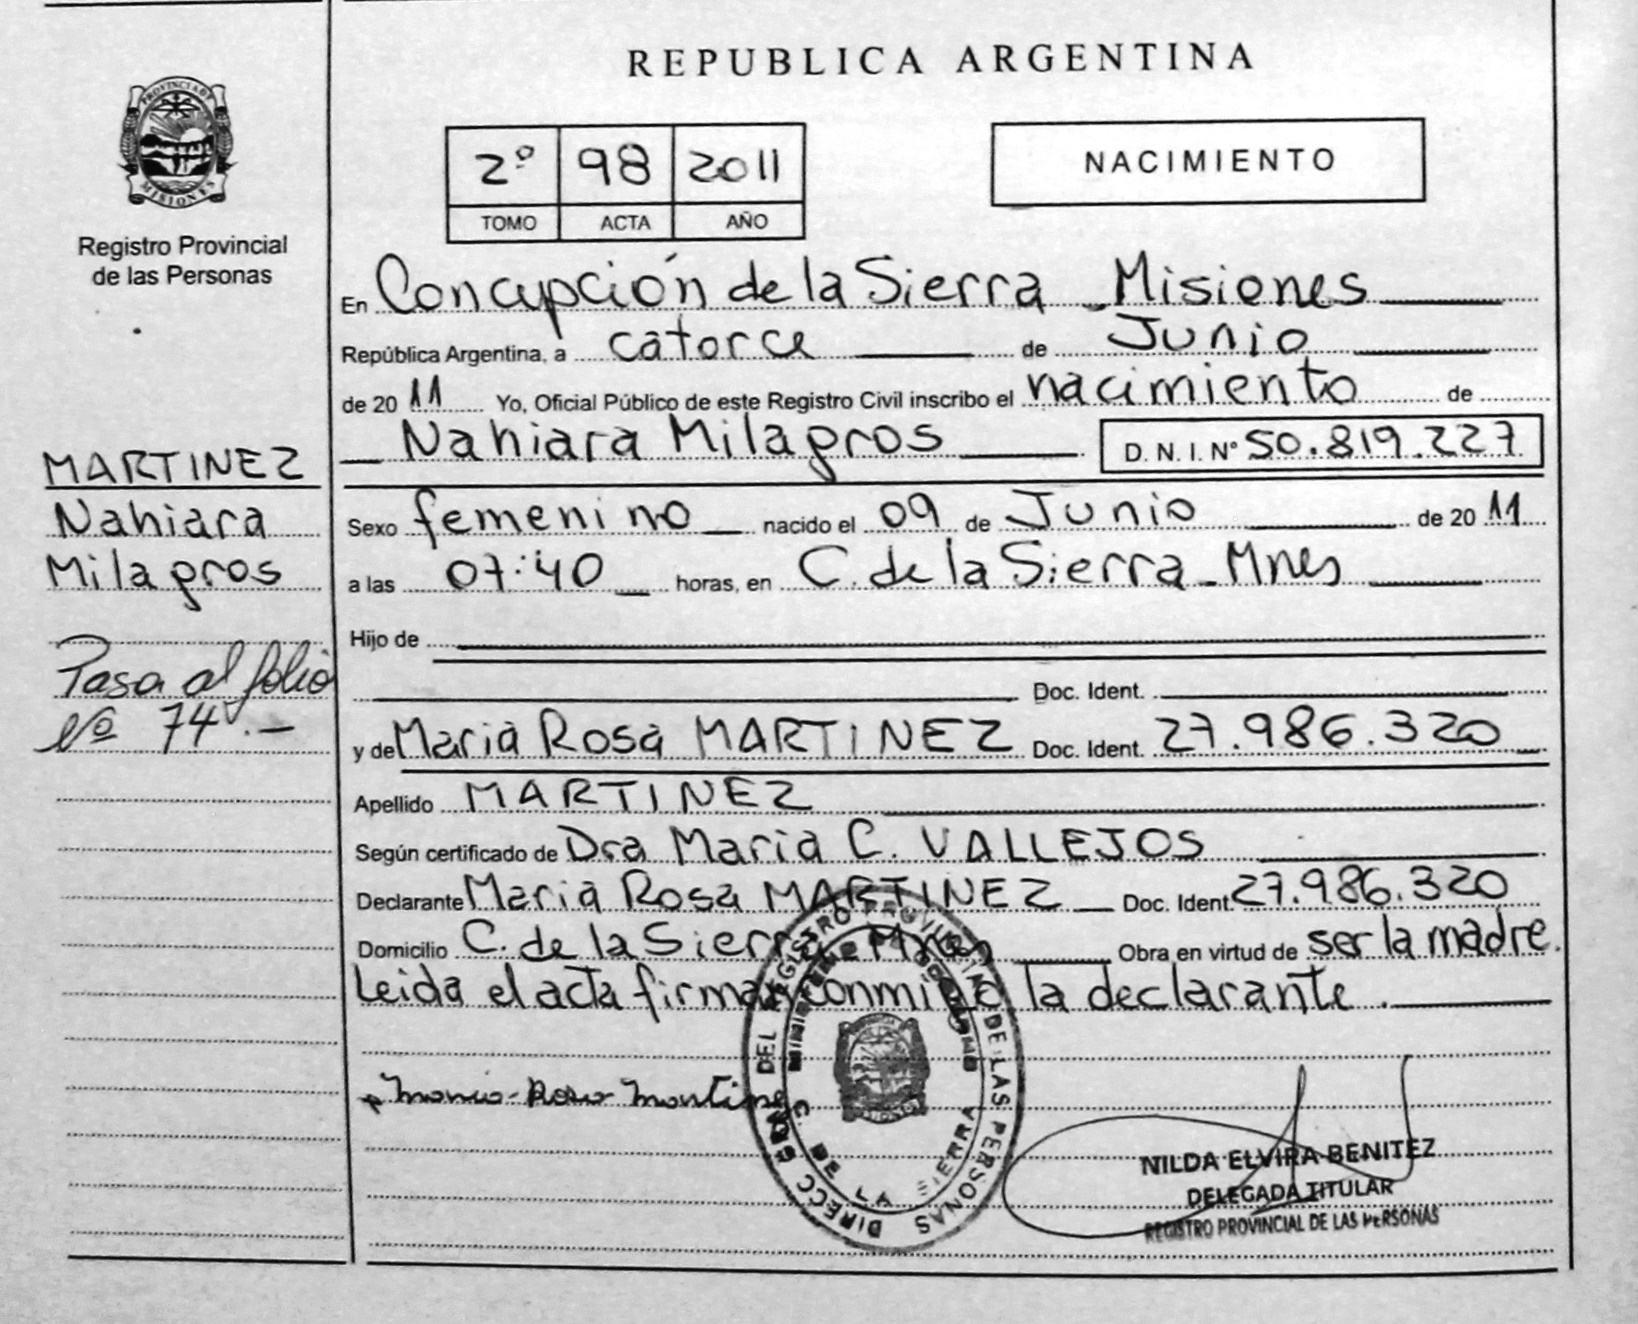 REPUBLICA ARGENTINA
PROVINCIA DE
MISIONES
Registro Provincial
de las Personas
2º 98 2011
TOMO ACTA AÑO
NACIMIENTO
En Concepción de la Sierra - Misiones
República Argentina, a catorce de Junio
de 20 11 Yo, Oficial Público de este Registro Civil inscribo el nacimiento de
Nahiara Milagros D.N.I. Nº 50.819.227
Sexo femenino nacido el 09 de Junio de 20 11
a las 07:40 horas, en C. de la Sierra - Mnes
Hijo de
Doc. Ident.
y de Maria Rosa MARTINEZ Doc. Ident. 27.986.320
Apellido MARTINEZ
Según certificado de Dra Maria C. VALLEJOS
Declarante Maria Rosa MARTINEZ Doc. Ident. 27.986.320
Domicilio C. de la Sierra - Mnes Obra en virtud de ser la madre.
Leida el acta firman conmigo la declarante.
MARTINEZ
Nahiara
Milagros
Pasa al folio
Nº 74.-
Maria Rosa Martinez
DEL REGISTRO PROVINCIAL DE LAS PERSONAS
C. DE LA SIERRA
NILDA ELVIRA BENITEZ
DELEGADA TITULAR
REGISTRO PROVINCIAL DE LAS PERSONAS